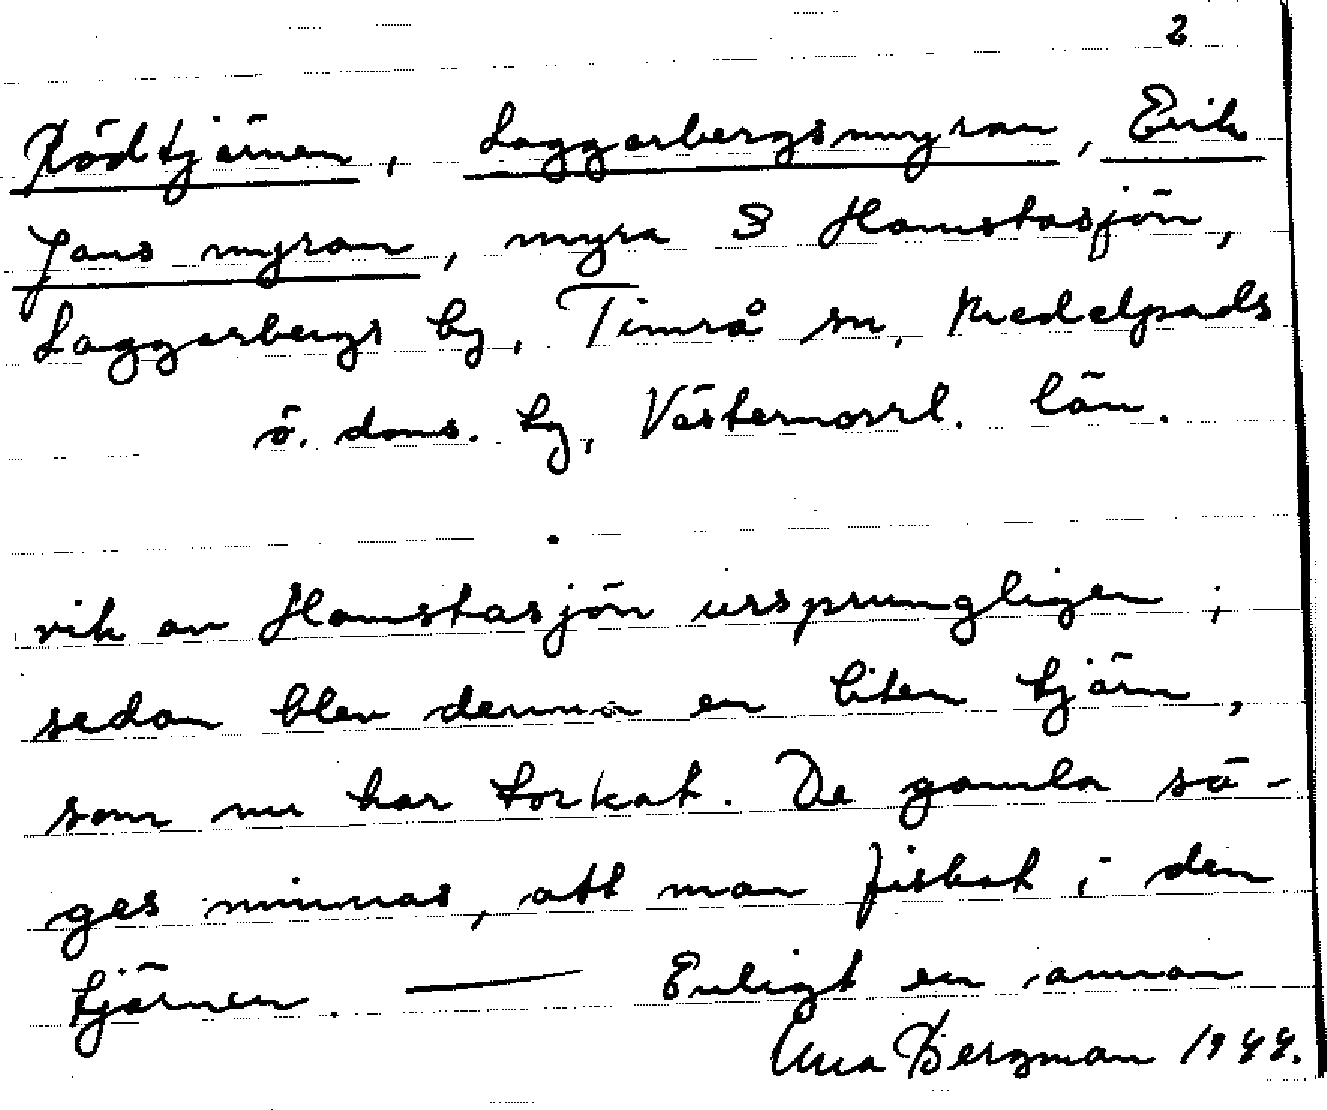 2
Rödtjärnen, Laggarbergsmyran, Erik
Jans myran, myra S Hamstasjön,
Laggarbergs by, Timrå sn, Medelpads
ö. doms. by, Västernorrl. län.
vik av Hamstasjön ursprungligen;
sedan blev denna en liten tjärn,
som nu har torkat. De gamla sä-
ges minnas, att man fiskat i den
tjärnen. — Enligt en annan
Bergman 1944.